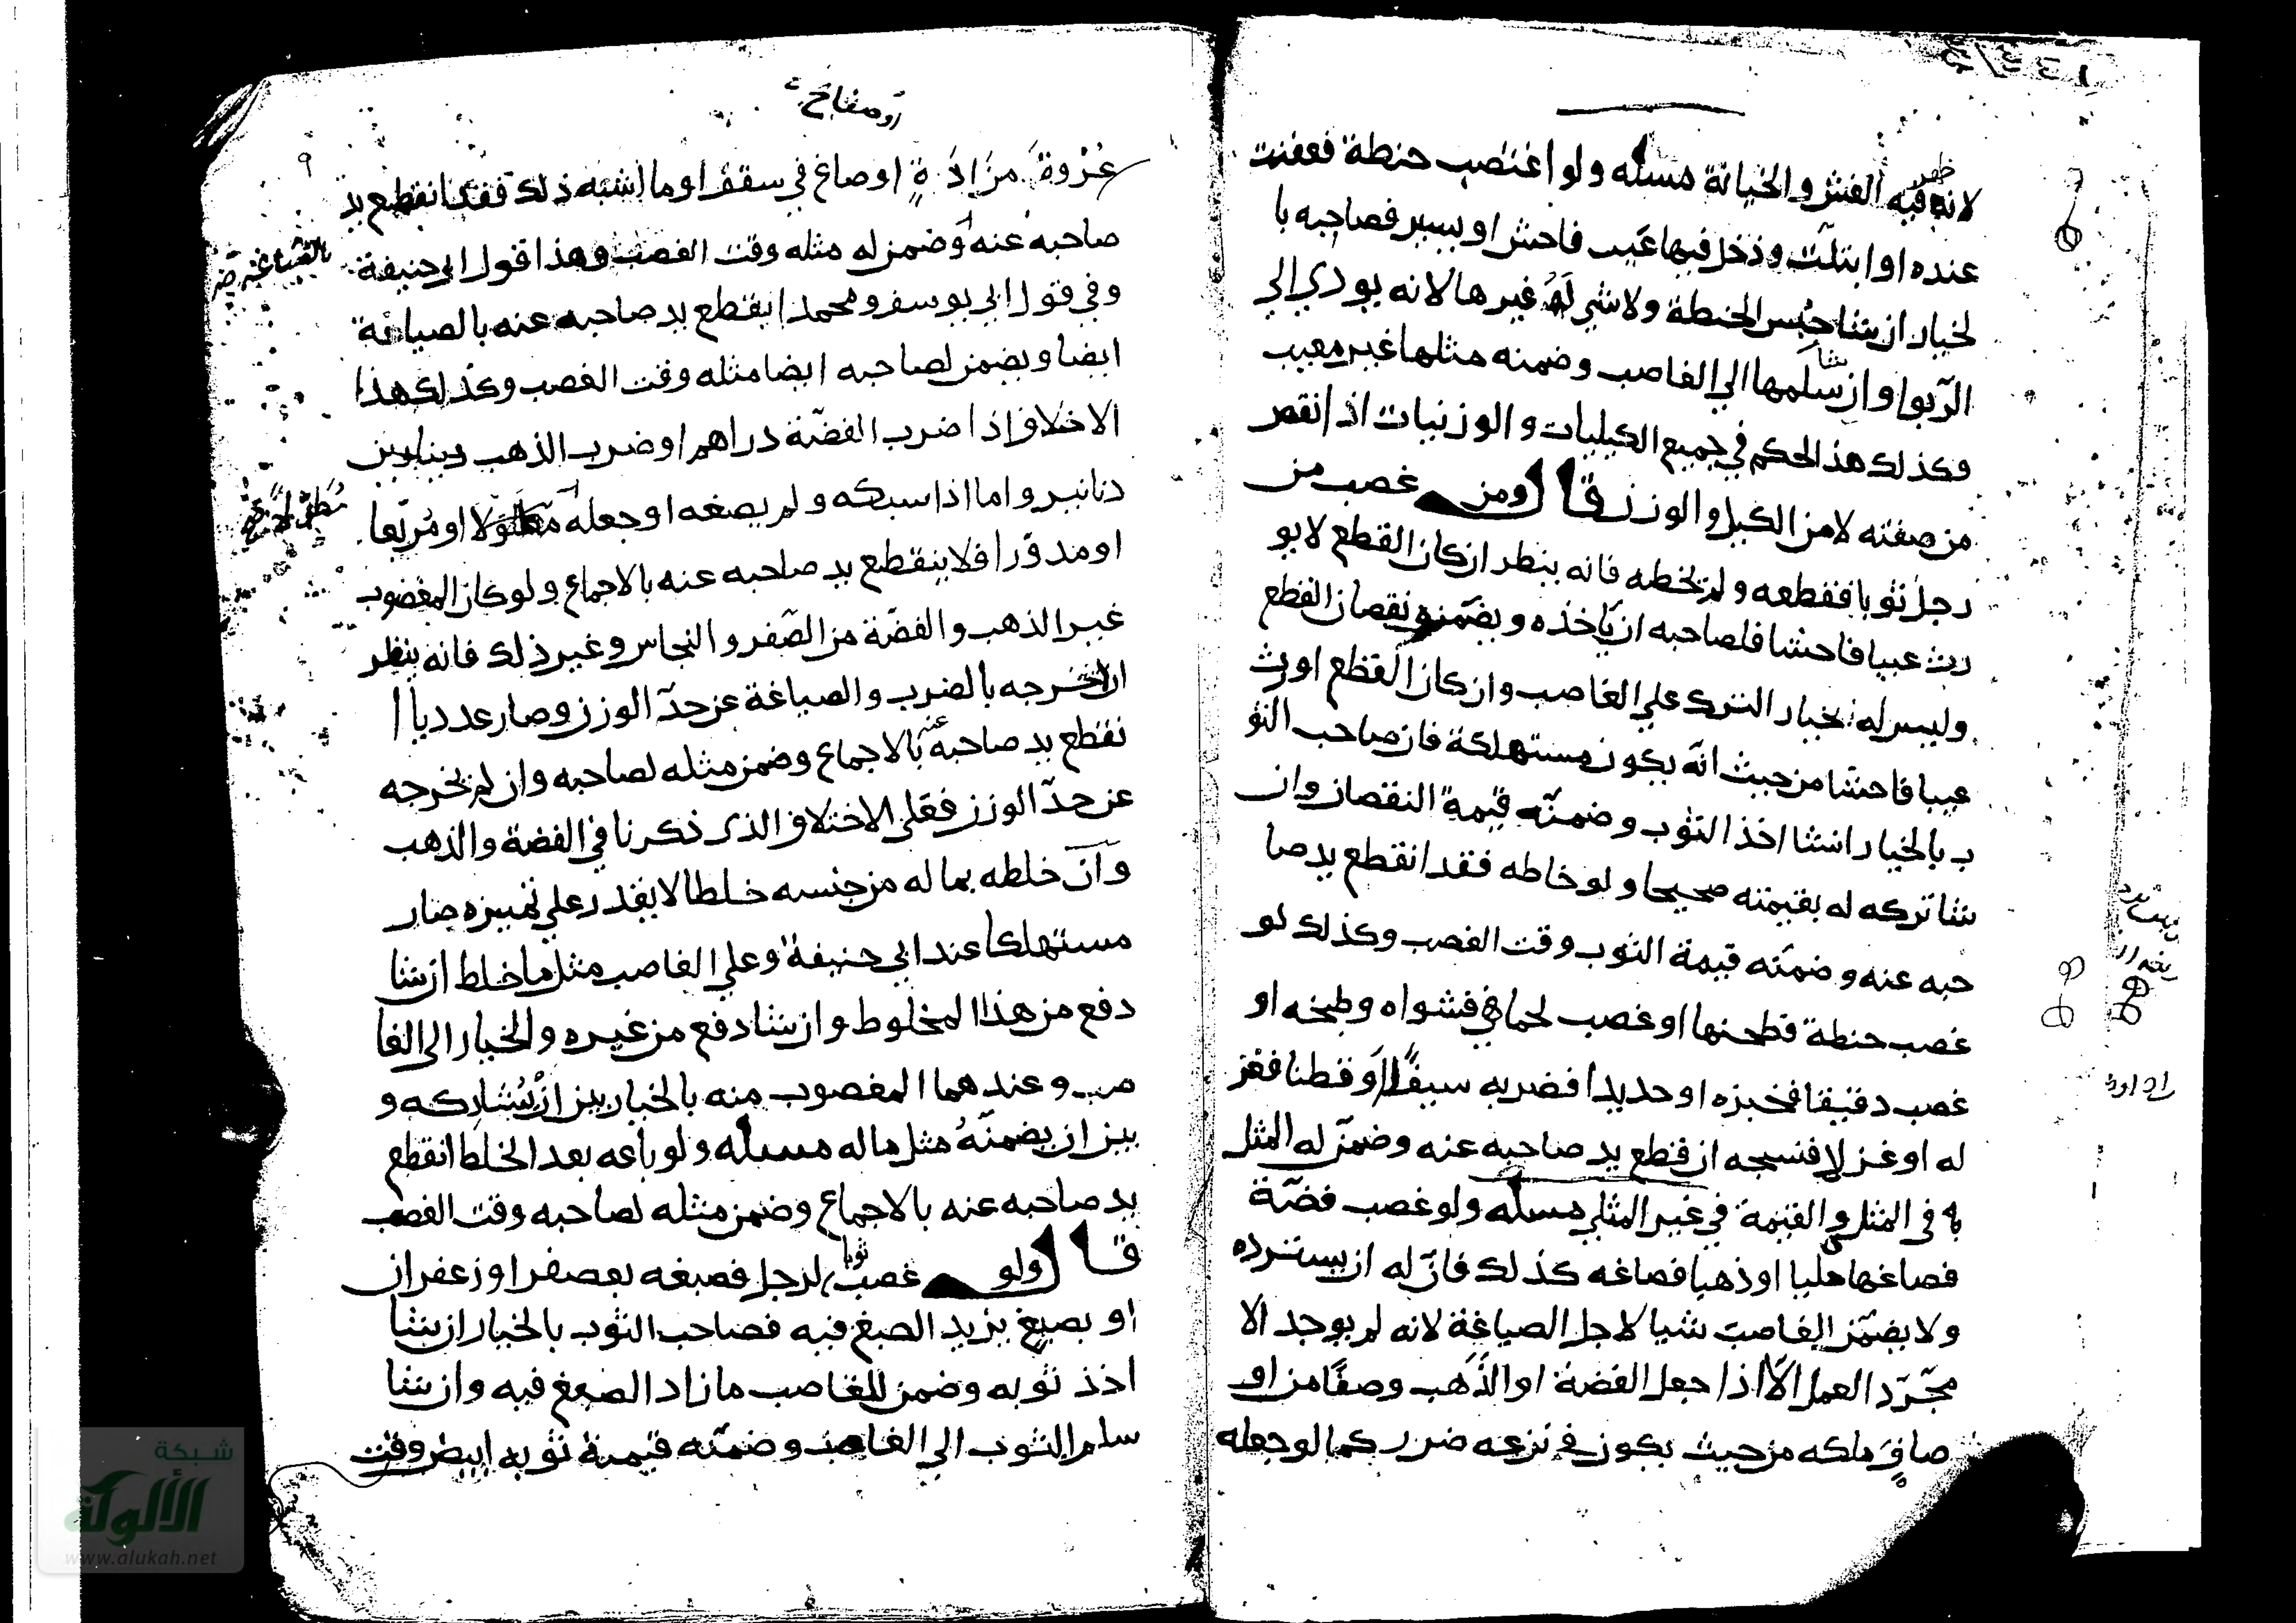 لانه ظهر فيه الغش والخيانة مسئله ولو اغتصب حنطة فعفنت
عنده او ابتلّت ودخل فيها عيب فاحش او يسير فصاحبه با
لخيار ان شا حبس الحنطة ولا شي له غيرها لانه يودي الي
الربوا وان شا سلمها الي الغاصب وضمنه مثلها غير معيب
وكذلك هذ الحكم في جميع الكيليات والوزنيات اذا نقص
من صفته لا من الكيل والوزن قال ومن غصب من
رجل ثوبا فقطعه ولم يخطه فانه ينظر ان كان القطع لا يو
رث عيبا فاحشا فلصاحبه ان ياخذه ويضمنه نقصان القطع
وليس له خيار الترك علي الغاصب وان كان القطع اورث
عيبا فاحشا من حيث انه يكون مستهلكة فان صاحب الثو
ب بالخيار ان شا اخذ الثوب وضمنّه قيمة النقصان وان
شا تركه له بقيمته صحيحا ولو خاطه فقد انقطع يد صا
حبه عنه وضمنه قيمة الثوب وقت الغصب وكذلك لو
غصب حنطة فطحنها او غصب لحما فشواه وطبخه او
غصب دقيقا فخبزه او حديدا فضربه سيفًا او قطنا فغز
له او غزلا فنسجه انقطع يد صاحبه عنه وضمن له المثل
في المثلي والقيمة في غير المثلي مسئله ولو غصب فضّة
فصاغها حليا او ذهبا فصاغه كذلك فانّ له ان يسترده
ولا يضمّن الغاصب شيا لاجل الصياغة لانه لم يوجد الا
مجّرد العمل الّا اذا جعل الفضة او الذّهب وصفًا من او
صاف ملكه من حيث يكون في نزعه ضرر كما لو جعله
او صفايح
عُرْوةَ مَزَادَةٍ او صاغ في سقف او ما اشبه ذلك فقد انقطع يد
صاحبه عنه وضمن له مثله وقت الغصب وهذا قول ابي حنيفة
وفي قول ابي يوسف ومحمد انقطع يد صاحبه عنه بالصياغة
ايضا ويضمن لصاحبه ايضا مثله وقت الغصب وكذلك هذا
الاختلاف اذا ضرب الفضّة دراهم او ضرب الذهب
دنانير واما اذا سبكه ولم يصغه او جعله مطولا او مُربّعا
او مدوّرا فلا ينقطع يد صاحبه عنه بالاجماع ولو كان المغصوب
غير الذهب والفضّة من الصّفر والنحاس وغير ذلك فانه ينظر
ان اخرجه بالضرب والصياغة عن حدّ الوزن وصار عدديا ا
نقطع يد صاحبه عنه بالاجماع وضمن مثله لصاحبه وان لم يخرجه
عن حدّ الوزن فعلي الاختلاف الذي ذكرنا في الفضة والذهب
وان خلطه بماله من جنسه خلطا لا يقدر علي تمييزه صار
مستهلكا عند ابي حنيفة وعلي الغاصب مثل ما خلط ان شا
دفع من هذا المخلوط وان شا دفع من غيره والخيار الي الغا
صب وعندهما المغصوب منه بالخيار بين ان يُشاركه و
بين ان يضمنّهُ مثل ماله مسئله ولو باعه بعد الخلط انقطع
يد صاحبه عنه بالاجماع وضمن مثله لصاحبه وقت الغصب
قال ولو غصب ثوبا لرجل فصبغه بعصفر او زعفران
او بصبغ يزيد الصبغ فيه فصاحب الثوب بالخيار ان شا
اخذ ثوبه وضمن للغاصب ما زاد الصبغ فيه وان شا
سلم الثوب الي الغاصب وضمنّه قيمة ثوبه ابيض وقت
شبكة
الألوكة
www.alukah.net